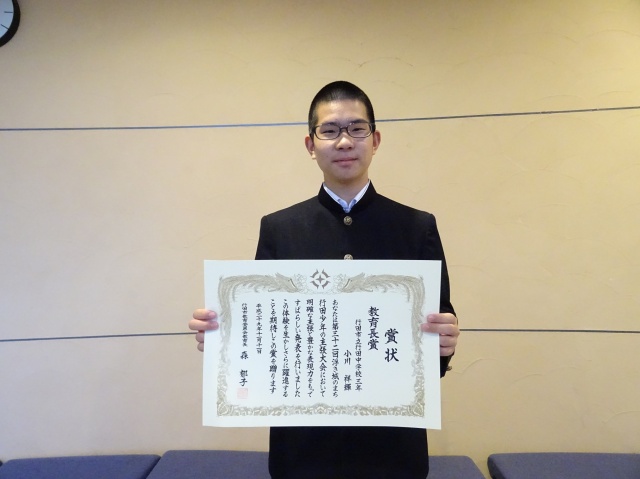 賞状
教育長賞
行田市立行田中学校三年
小川 祥輝
あなたは第三十二回浮き城のまち
行田少年の主張大会において
明確な主張と豊かな表現力をもって
すばらしい発表を行いました
この体験を生かしさらに躍進する
ことを期待しこの賞を贈ります
平成二十九年十一月十一日
行田市教育委員会教育長
森 郁子